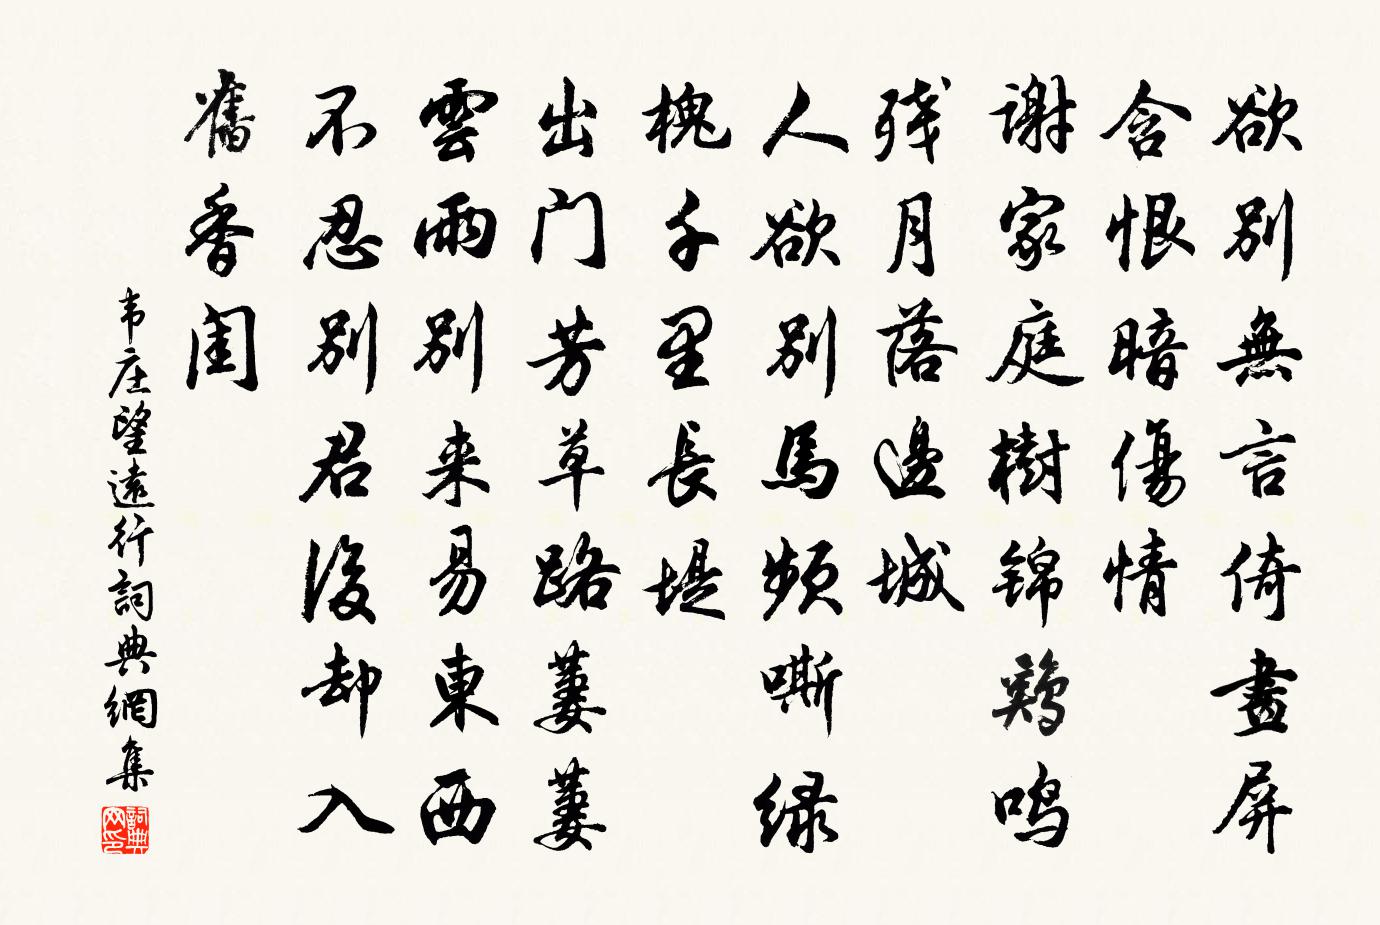 欲别無言倚畫屏
含恨暗傷情
謝家庭樹锦鷄鳴
残月落邊城
人欲别馬頻嘶
绿槐千里長堤
出门芳草路萋萋
雲雨别来易東西
不忍别君後却入
舊香闺
韦庄望遠行詞典網集
詞典网印